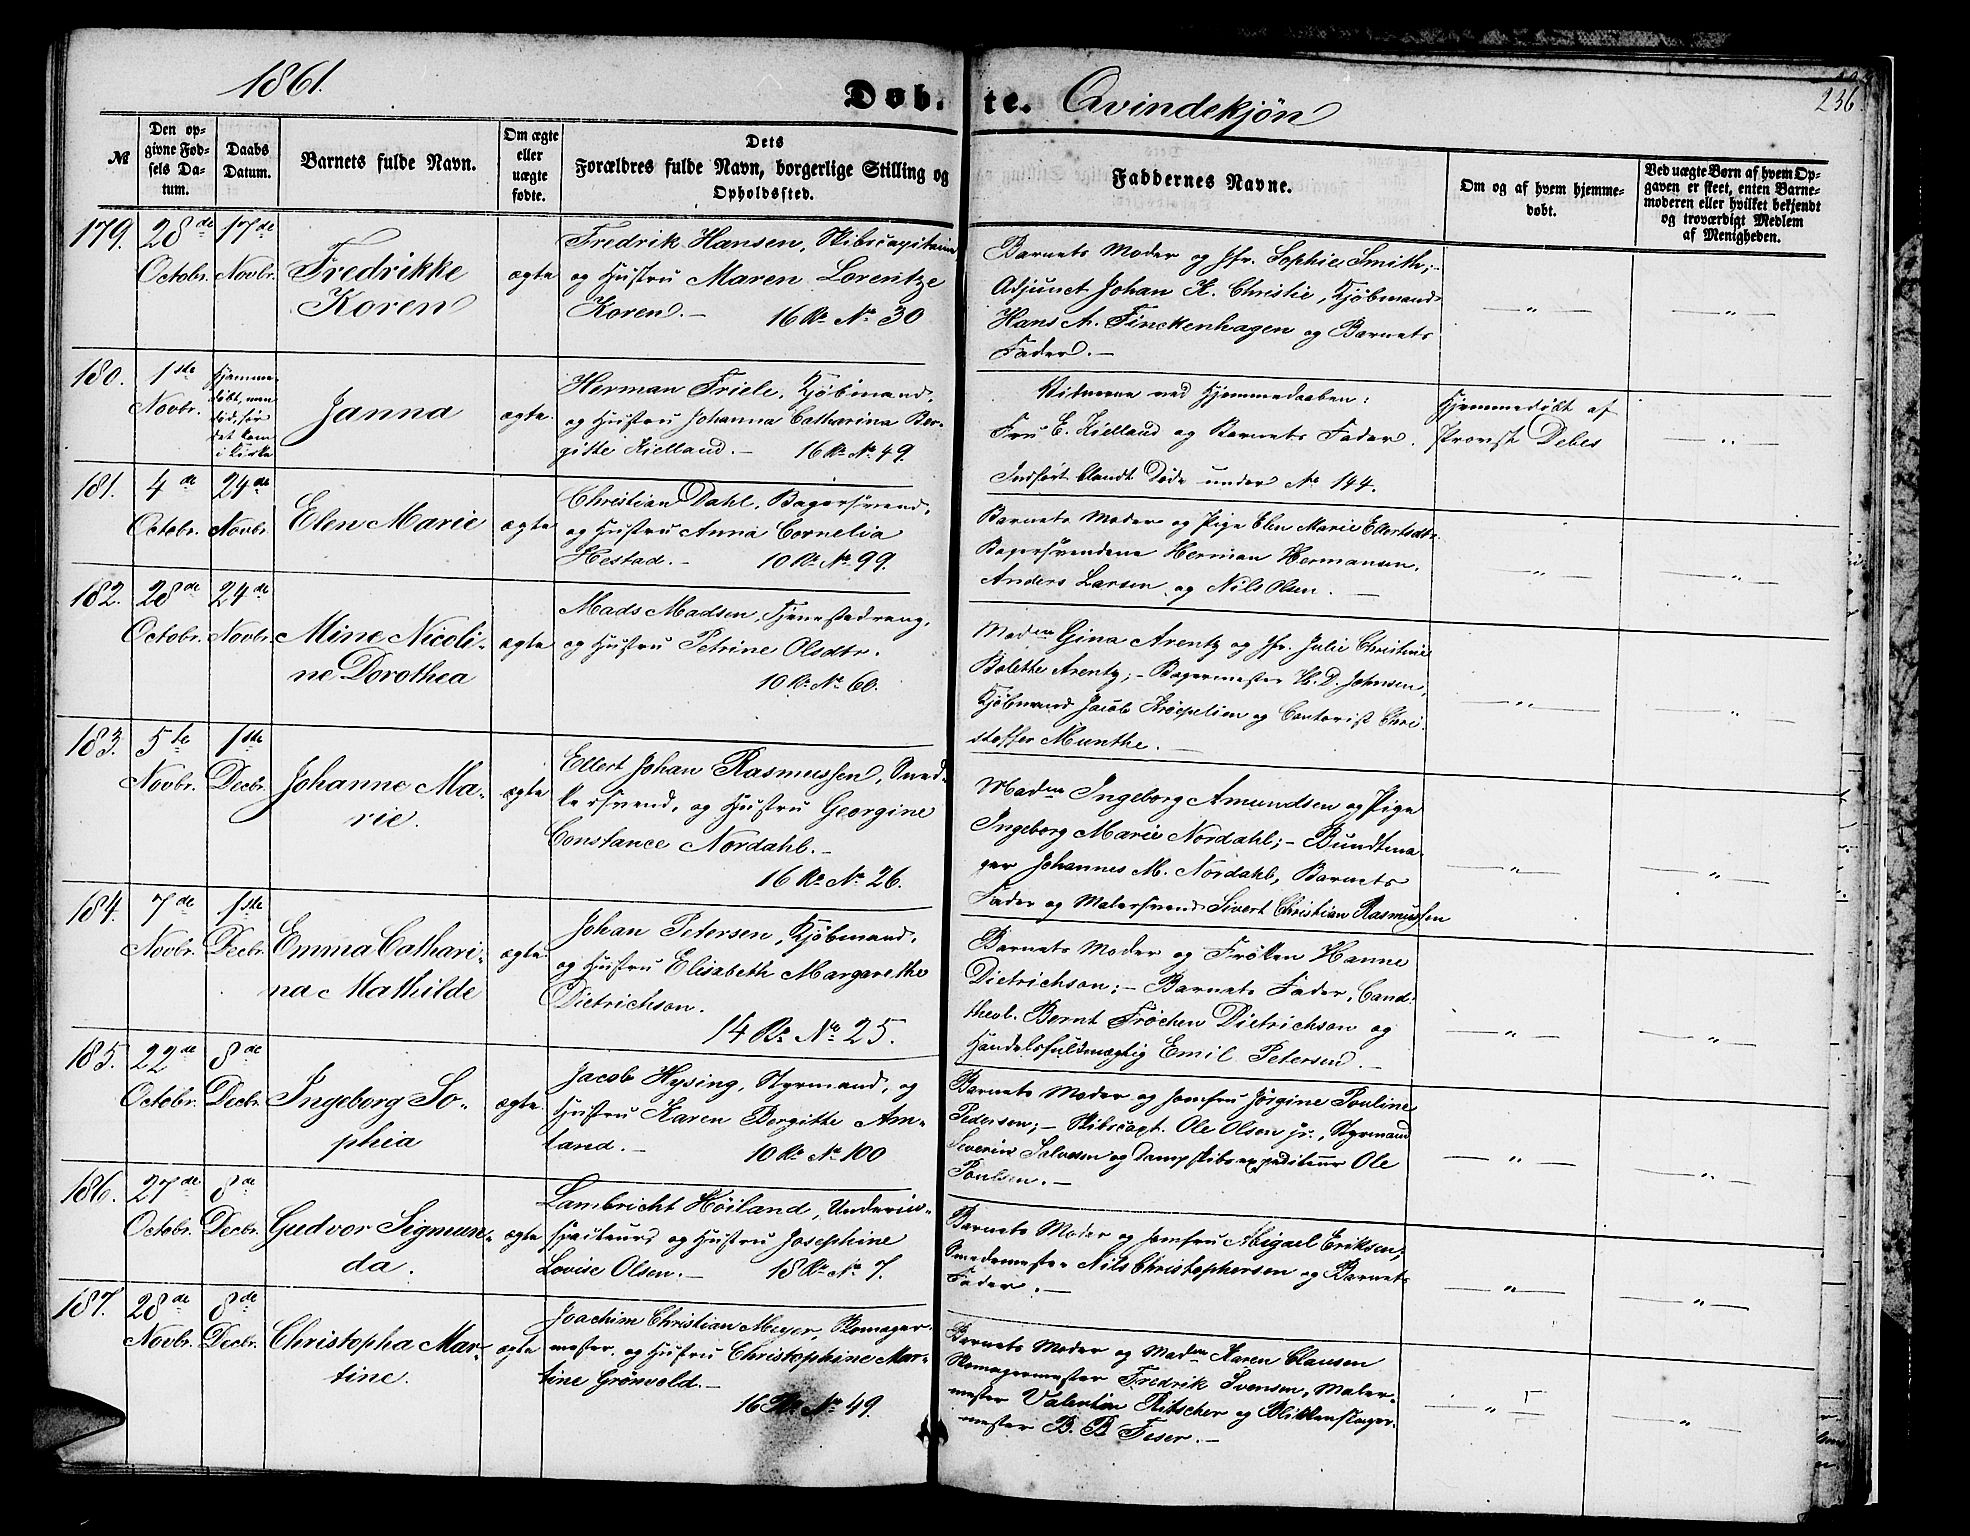 1861.
Døb. te. Qvindekjøn
236
№
Den op-
givne Fød-
sels Da-
tum.
Daabs
Datum.
Barnets fulde Navn.
Om ægte
eller
uægte
fødte.
Dets
Forældres fulde Navn, borgerlige Stilling og
Opholdssted.
Faddernes Navne.
Om og af hvem hjemme-
døbt.
Ved uægte Børn af hvem Op-
gaven er skeet, enten Barne-
moderen eller hvilket bekjendt
og troværdigt Medlem
af Menigheden.
179. 28de Octobr. 17de Novbr.
Fredrikke
Koren
ægte
Fredrik Hansen, Skibscapitain
og Hustru Maren Lorentze
Koren. — 16 R. No 30
Barnets Moder og Jfr. Sophie Smith; -
Adjunct Johan K. Christie, Kjøbmand
Hans A. Finckenhagen og Barnets
Fader. —
— „ — — „ —
180. 1ste Novbr.
Hjemme-
døbt, men
død, før
det kom
i Kirke
Janna
ægte.
Herman Friele, Kjøbmand,
og Hustru Johanna Catharina Ber-
gitte Kielland. — 16 R. No 49.
Vidnerne ved Hjemmedaaben:
Fru E. Kielland og Barnets Fader.
Indført blandt Døde under No 144.
Hjemmedøbt af
Provst Debes
— „ —
181. 4de Octobr. 24de Novbr.
Elen Marie
ægte
Christian Dahl, Bagersvend,
og Hustru Anna Cornelia
Hestad. — 10 R. No 99.
Barnets Moder og Pige Elen Marie Ellertsdtr.
Bagersvendene Herman Hermansen,
Anders Larsen og Nils Olsen. —
— „ — — „ —
182. 28de Octobr. 24de Novbr.
Mine Nicoli-
ne Dorothea
ægte
Mads Madsen, Tjenestedreng,
og Hustru Petrine Olsdtr.
10 R. No 60.
Madme Gina Arentz og Jfr. Julie Christine
Bolethe Arentz; - Bagermester H. D. Johnsen,
Kjøbmand Jacob Krøepelien og Contorist Chri-
stoffer Munthe. —
— „ — — „ —
183. 5te Novbr. 1ste Decbr.
Johanne Ma-
rie.
ægte
Ellert Johan Rasmussen, Sned-
kersvend, og Hustru Georgine
Constance Nordahl. —
16 R. No 26.
Madme Ingeborg Amundsen og Pige
Ingeborg Marie Nordahl; - Bundtma-
ger Johannes M. Nordahl, Barnets
Fader og Malersvend Sivert Christian Rasmussen
— „ — — „ —
184. 7de Novbr. 1ste Decbr.
Emma Cathari-
na Mathilde
ægte.
Johan Petersen, Kjøbmand,
og Hustru Elisabeth Margarethe
Dietrichson.
14 R. No 25.
Barnets Moder og Frøken Hanne
Dietrichson; - Barnets Fader, Cand.
theol. Bernt Frøchen Dietrichson og
Handelsfuldmægtig Emil Petersen. —
— „ — — „ —
185. 22de Octobr. 8de Decbr.
Ingeborg So-
phia
ægte.
Jacob Hysing, Styrmand, og
Hustru Karen Bergithe Am-
land. — 10 R. No 100
Barnets Moder og Jomfru Jørgine Pouline
Pedersen; - Skibscapt. Ole Olsen jr., Styrmand
Severin Salvesen og Dampskibsexpediteur Ole
Poulsen. —
— „ — — „ —
186. 27de Octobr. 8de Decbr.
Gudvor Sigmun-
da.
ægte
Lambricht Høiland, Underin-
specteur, og Hustru Josephine
Lovise Olsen. — 18 R. No 7.
Barnets Moder og Jomfru Abigael Eriksen,
Smedemester Nils Christophersen og Barnets
Fader. —
— „ — — „ —
187. 28de Novbr. 8de Decbr.
Christopha Mar-
tine.
ægte
Joachim Christian Meyer, Skomager-
mester, og Hustru Christophine Mar-
tine Grønvold. —
16 R. No 49.
Barnets Moder og Madme Karen Clausen
Skomagermester Fredrik Svensen, Maler-
mester Valentin Ritscher og Blikkenslager-
mester B. B. Feser. —
— „ — „